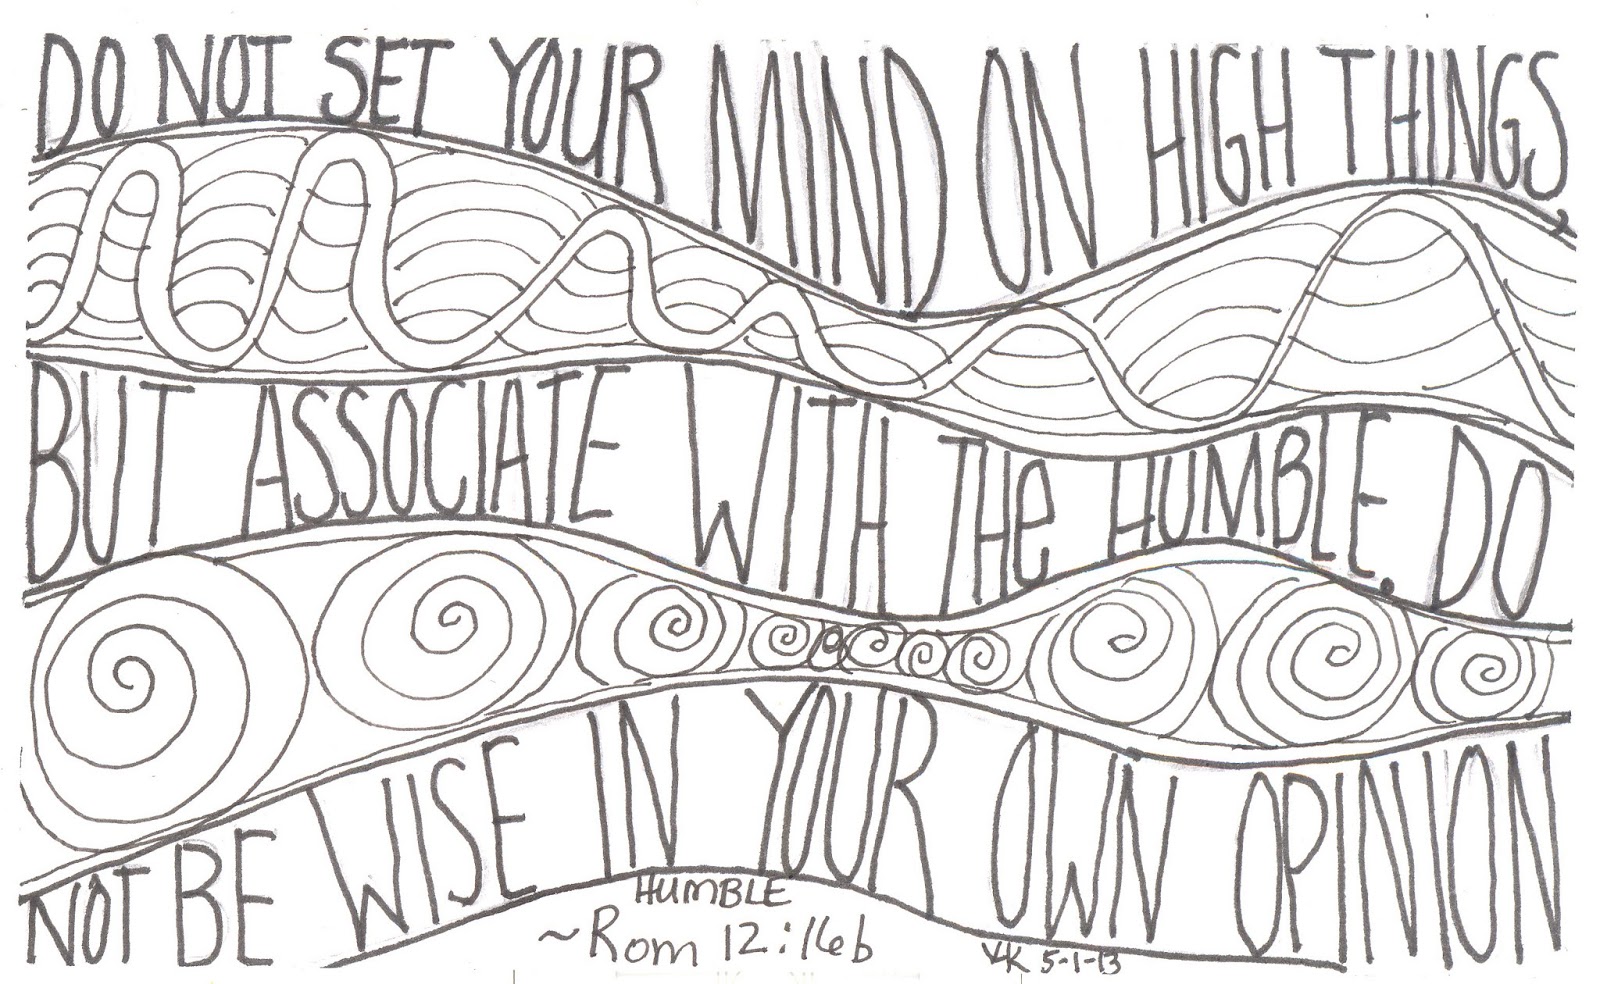 DO NOT SET YOUR MIND ON HIGH THINGS,
BUT ASSOCIATE WITH THe HUMBLE. DO
NOT BE WISE IN YOUR OWN OPINION
HUMBLE
~Rom 12:16b
VK 5-1-13